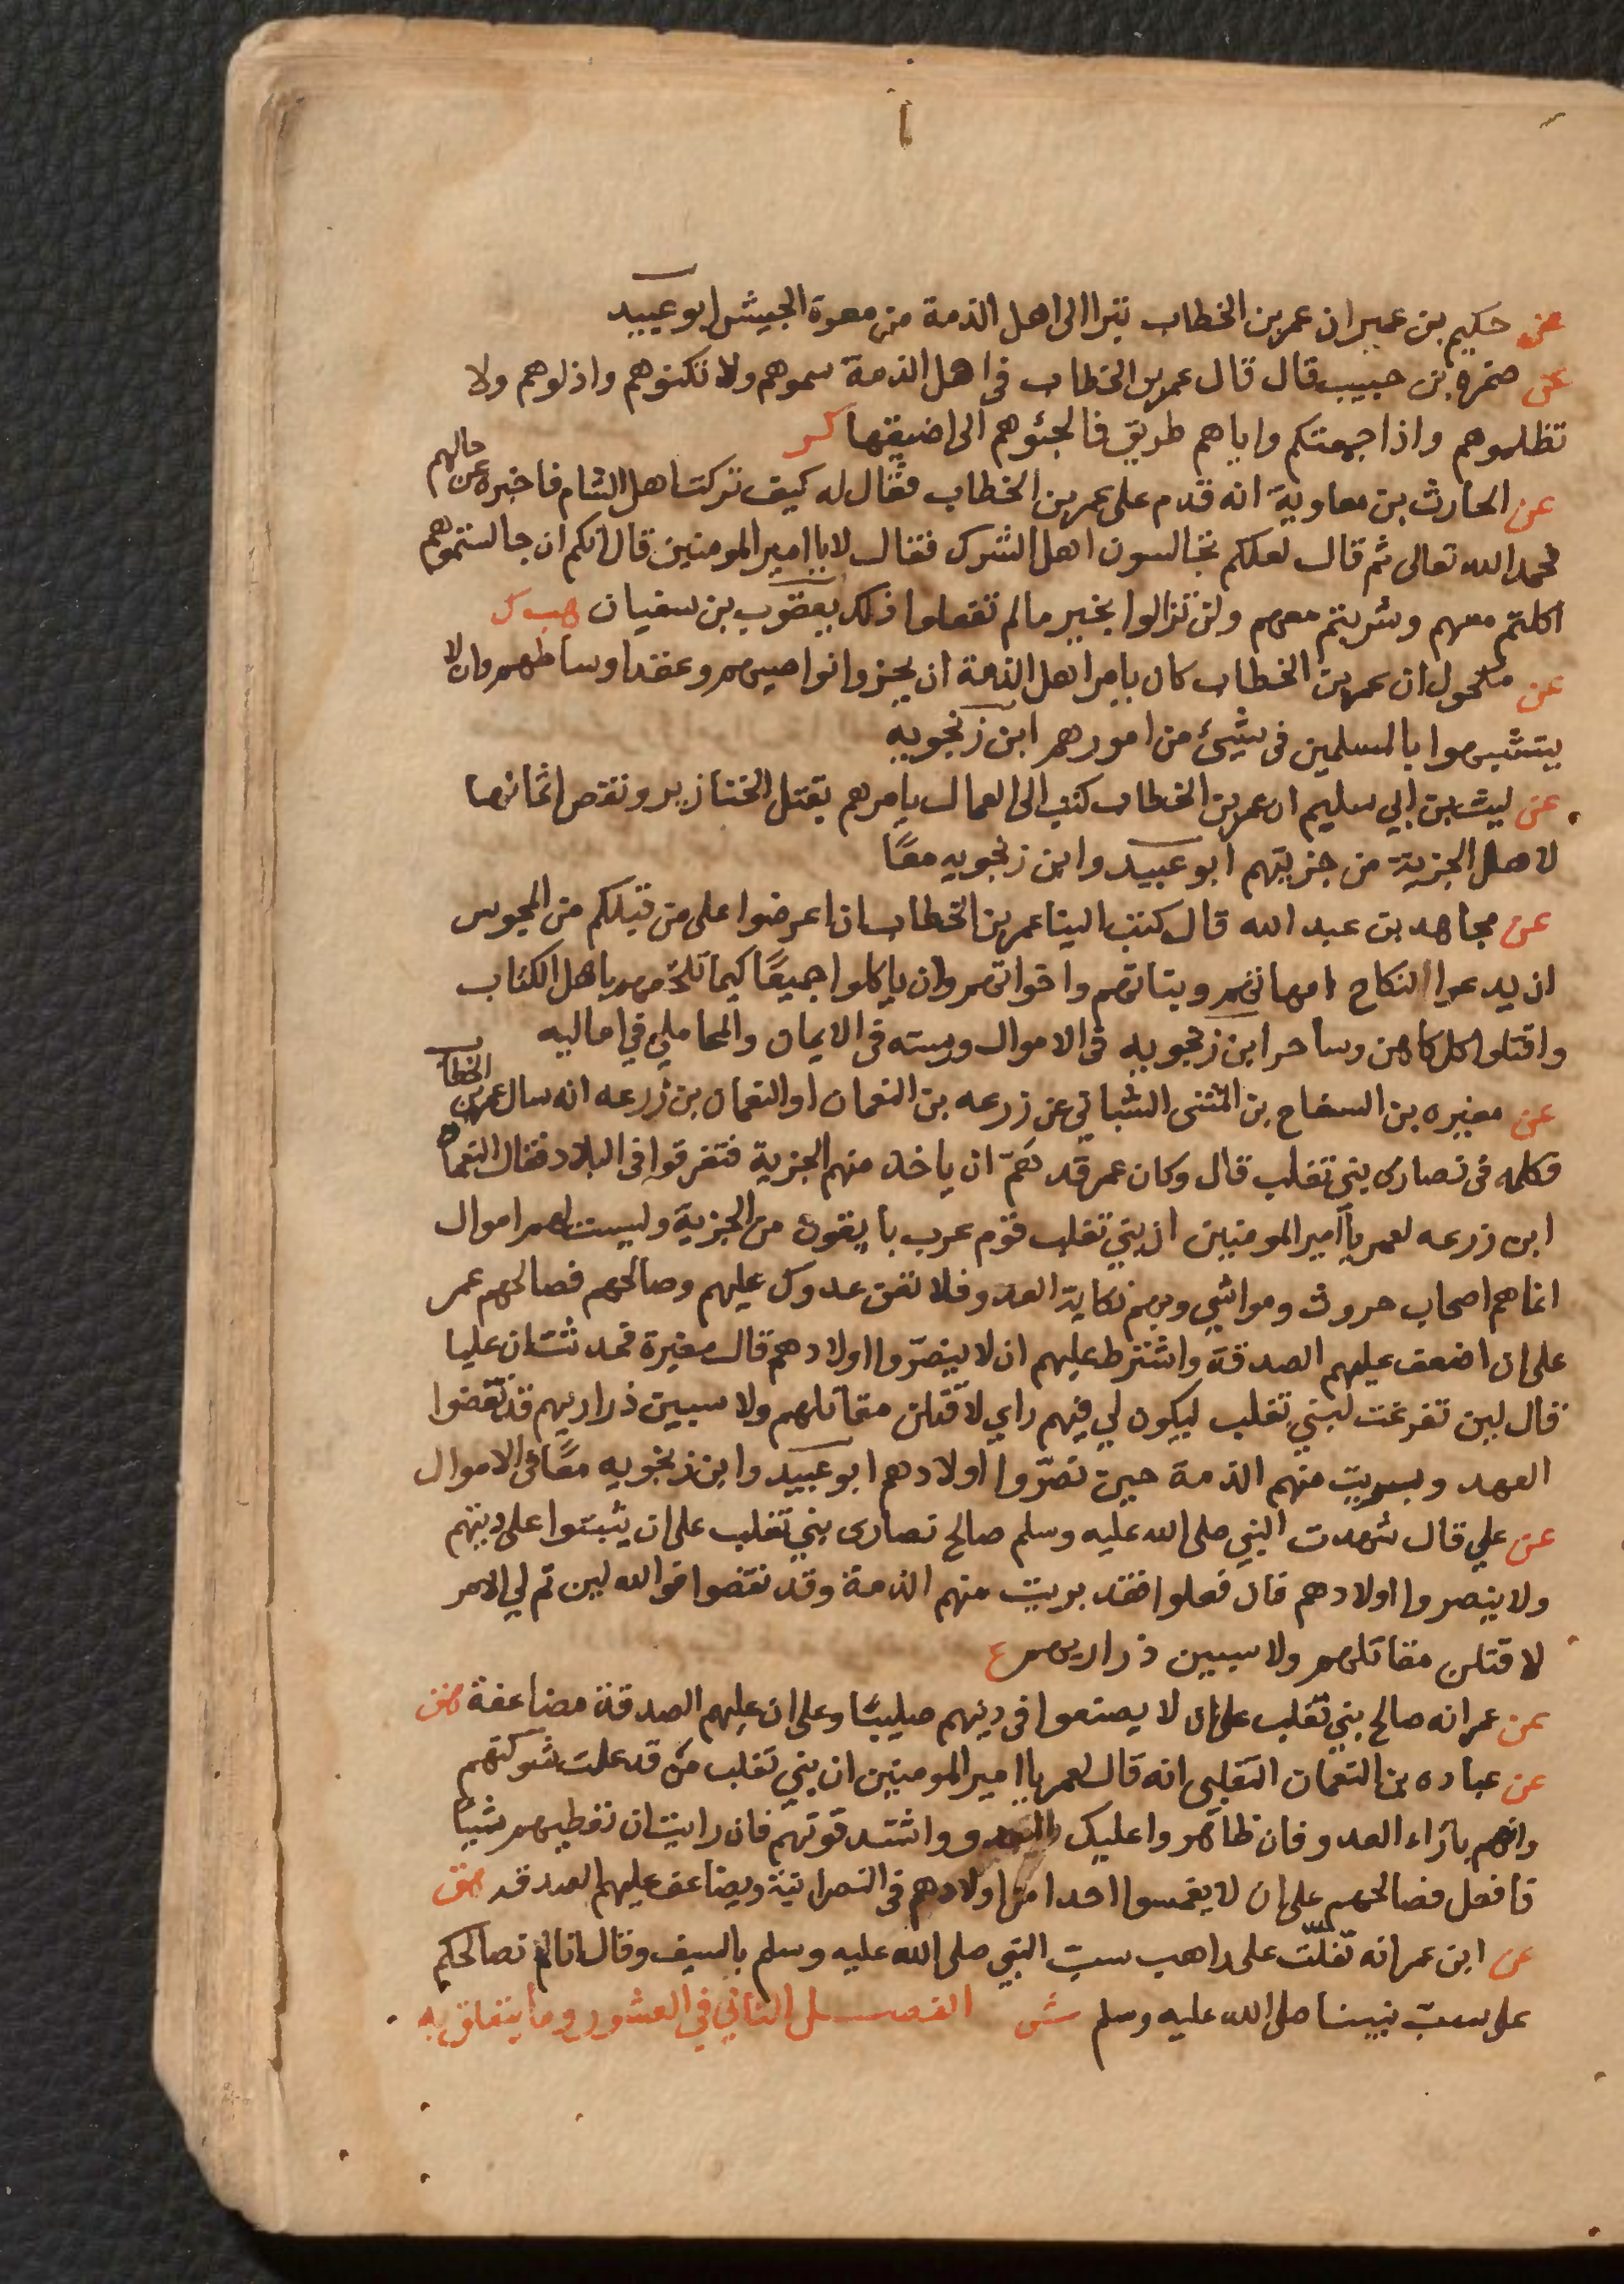 عن حكيم بن عمير ان عمر بن الخطاب تبرا الى اهل الذمة من معرة الجيش ابو عبيد
عن ضمره بن حبيب قال قال عمر بن الخطاب في اهل الذمة سموهم ولا تكنوهم واذلوهم ولا
تظلموهم واذا جمعتكم واياهم طريق فالجئوهم الى اضيقها كر
عن الحارث بن معاوية انه قدم على عمر بن الخطاب فقال له كيف تركت اهل الشام فاخبره عن حالهم
فحمد الله تعالى ثم قال لعلكم تجالسون اهل الشرك فقال لا يا امير المومنين قال انكم ان جالستموهم
اكلتم معهم وشربتم معهم ولن تزالوا بخير مالم تفعلوا ذلك يعقوب بن سفيان هب كر
عن مكحول ان عمر بن الخطاب كان يامر اهل الذمة ان يجزوا نواصيهم وعقد اوساطهم وان لا
يتشبهوا بالمسلمين في شيئ من امورهم ابن زنجويه
عن ليث بن ابي سليم ان عمر بن الخطاب كتب الى العمال يامرهم بقتل الخنازير ونقص اثمانها
لاهل الجزية من جزيتهم ابو عبيد وابن زنجويه معًا
عن مجاهد بن عبد الله قال كتب الينا عمر بن الخطاب ان اعرضوا على من قبلكم من المجوس
ان يدعوا النكاح امهاتهم وبناتهم واخواتهم وان ياكلوا جميعًا كيما نلحقهم باهل الكتاب
واقتلوا كل كاهن وساحر ابن زنجويه في الاموال ورسته في الايمان والمحاملي في اماليه
عن مغيره بن السفاح بن المثنى الشيباني عن زرعه بن النعمان او النعمان بن زرعه انه سال عمر بن الخطاب
فكلمه في نصارى بني تغلب قال وكان عمر قد همّ ان ياخذ منهم الجزية فتفرقوا في البلاد فقال النعمان
ابن زرعه لعمر يا امير المومنين ان بني تغلب قوم عرب يايفون من الجزية وليست لهم اموال
انما هم اصحاب حروث ومواشي وبهم نكاية العدو فلا تعن عدوك عليهم وصالحهم فصالحهم عمر
على ان اضعف عليهم الصدقة واشترط عليهم ان لا ينصّروا اولادهم قال مغيرة فحدثت ان عليا
قال لين تفرغت لبني تغلب ليكون لي فيهم راي لاقتلن مقاتلهم ولاسبين ذراريهم قد نقضوا
العهد وبريت منهم الذمة حين نصّروا اولادهم ابو عبيد وابن زنجويه معًا في الاموال
عن علي قال شهدت النبي صلى الله عليه وسلم صالح نصارى بني تغلب على ان يثبتوا على دينهم
ولا ينصروا اولادهم فان فعلوا فقد بريت منهم الذمة وقد نقضوا فوالله لين تم لي الامر
لاقتلن مقاتلهم ولاسبين ذراريهم ع
عن عمر انه صالح بني تغلب على ان لا يصنعوا في دينهم صليبا وعلى ان عليهم الصدقة مضاعفة هق
عن عباده بن النعمان التغلبي انه قال لعمر يا امير المومنين ان بني تغلب من قد علمت شوكتهم
وانهم بازاء العدو فان ظاهروا عليك العدو واشتد قوتهم فان رايت ان تعطيهم شيئا
فافعل فصالحهم على ان لا يغمسوا احدا من اولادهم في النصرانية ويضاعف عليهم الصدقه هق
عن ابن عمر انه تفلّت على راهب سبّ النبي صلى الله عليه وسلم بالسيف وقال انا لم نصالحكم
على سبّ نبينا صلى الله عليه وسلم ش الفصل الثاني في العشور وما يتعلق به